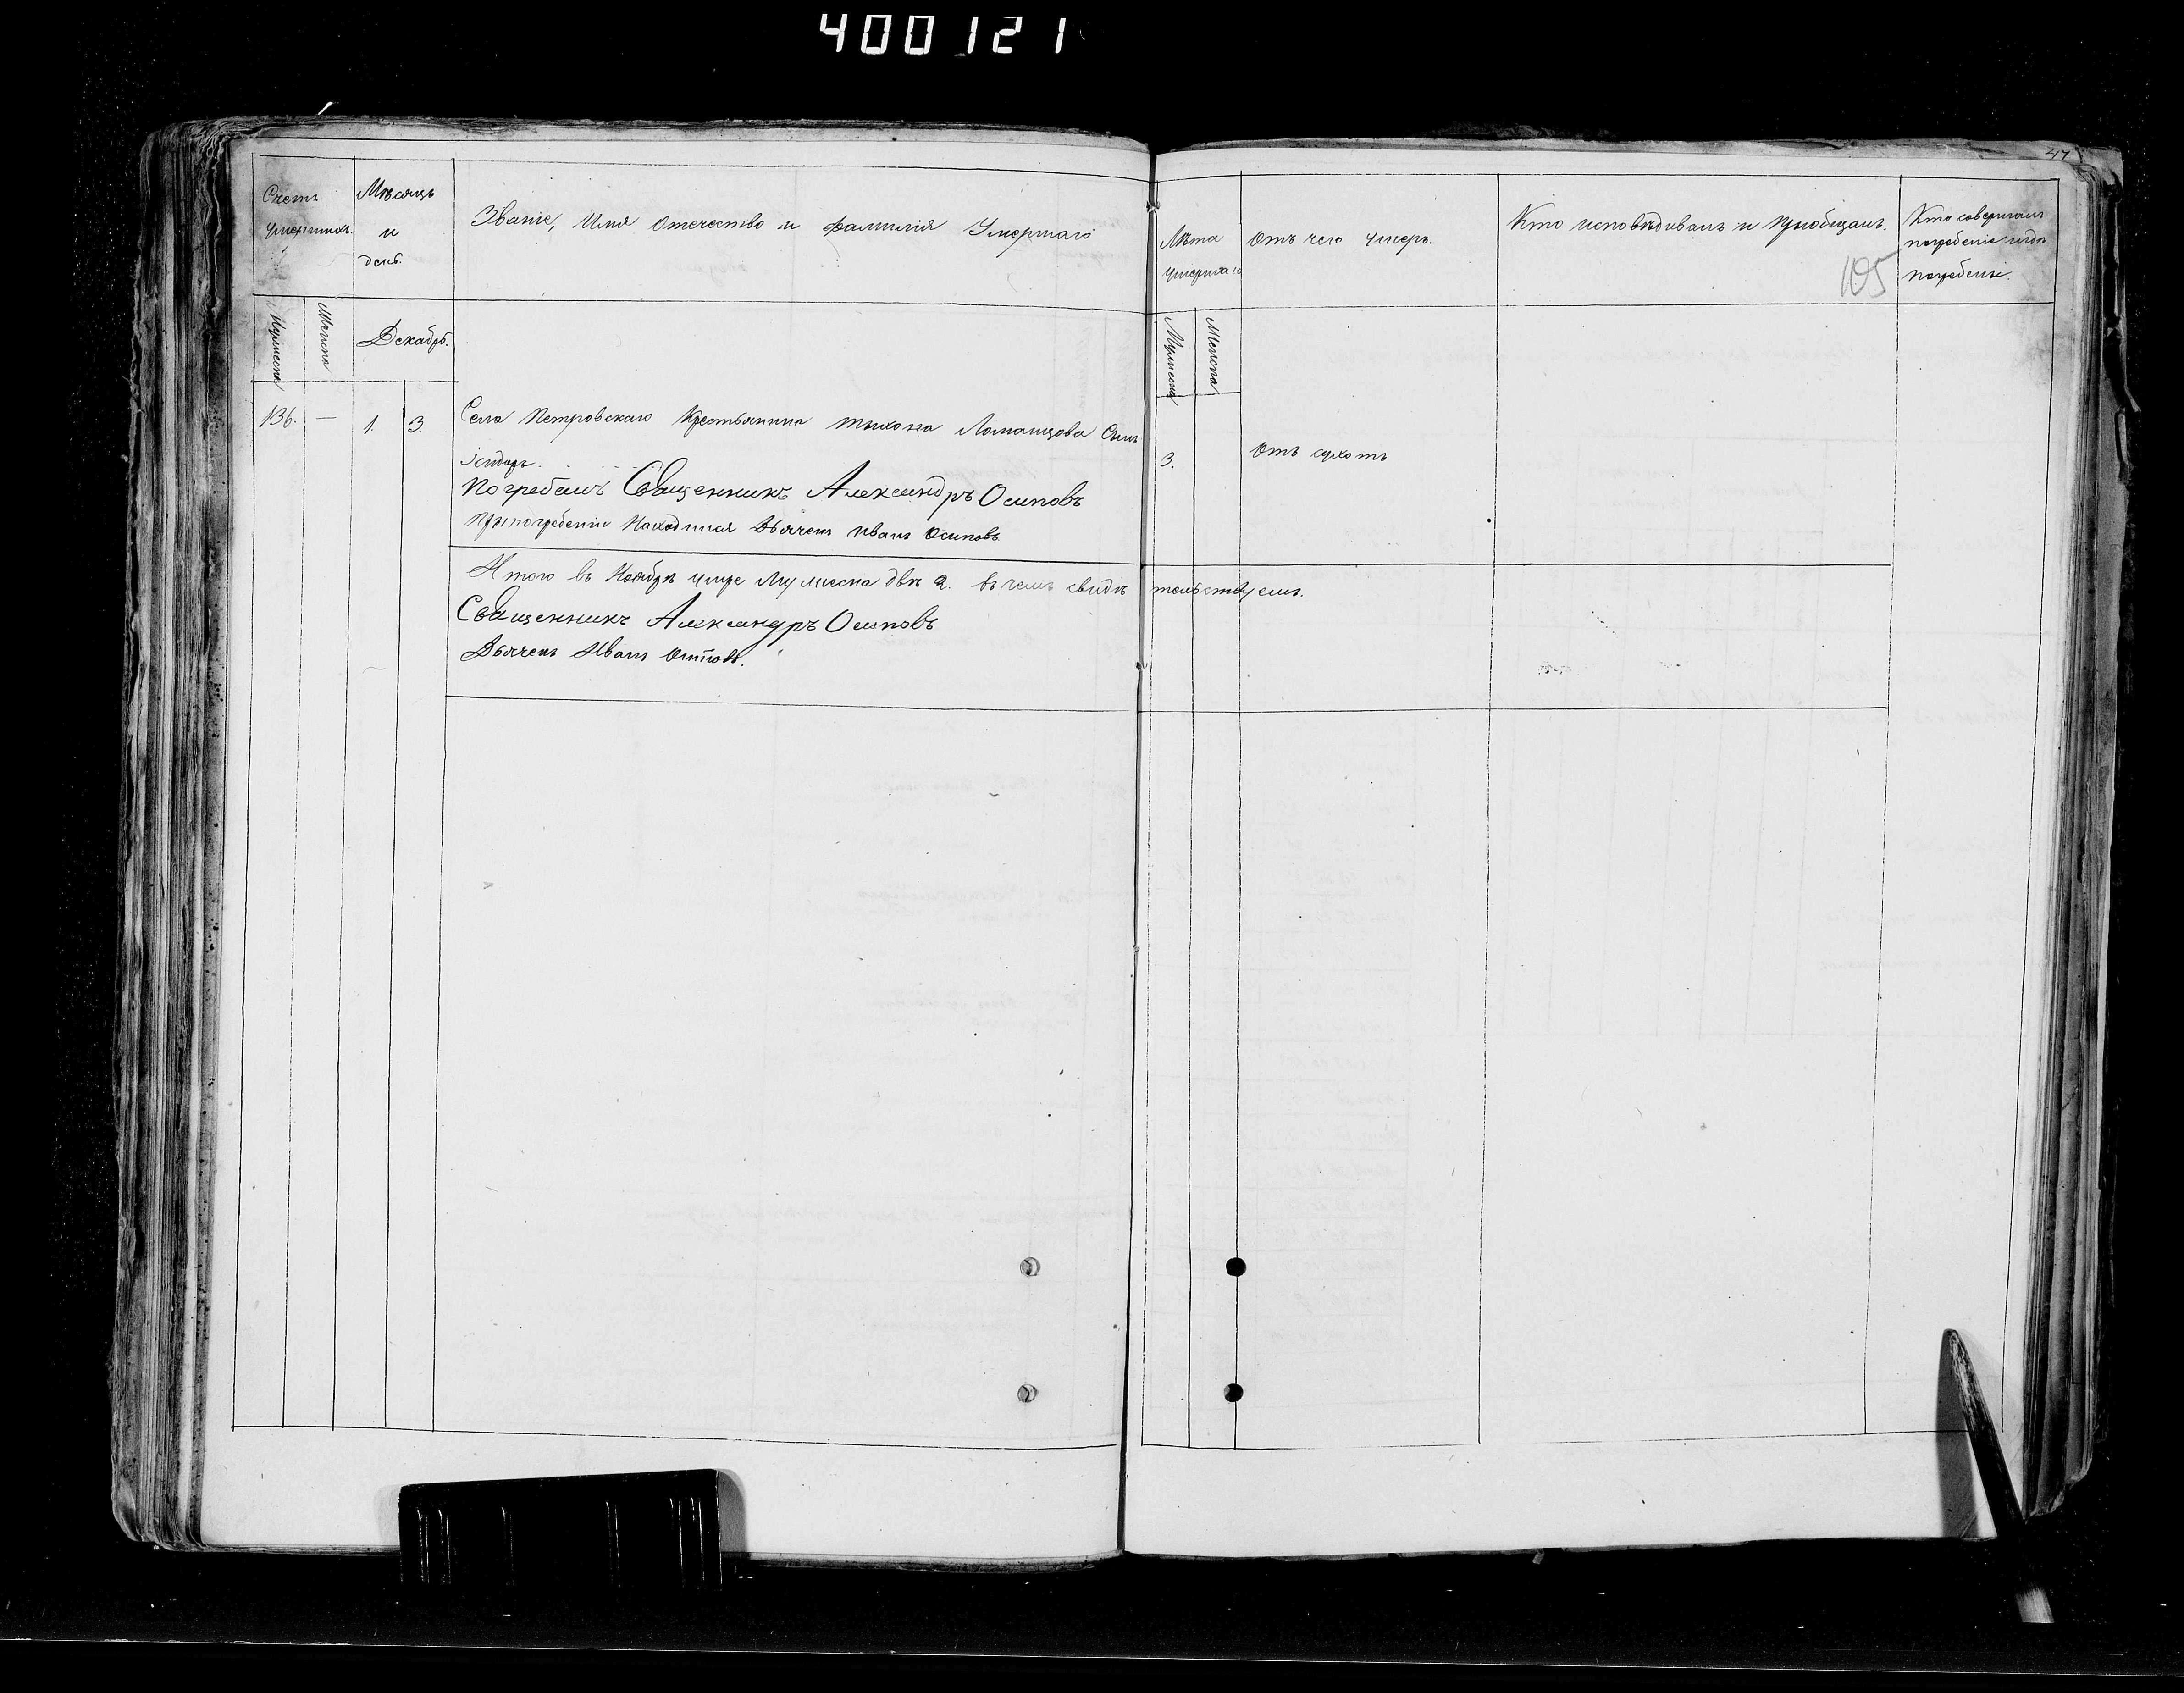 400121
47
Счетъ Умершихъ.
Мѣсяцъ и день.
Званіе, Имя Отечество и Фамилія Умершаго
Лѣта Умершаго
Отъ чего умеръ.
Кто исповѣдывалъ и пріобщалъ.
Кто совершалъ погребеніе и гдѣ погребены.
105
Мужеска
Женска
Декабрь.
Мужеска
Женска
136. — 1. 3. Села Петровскаго Крестьянина Тихона Ломанцова Сынъ
3. Отъ сухотъ
Погребалъ Священникъ Александръ Осиповъ
При погребеніи Находился Дьячекъ Иванъ Осиповъ
Итого въ Ноябрѣ умре Мужеска двѣ 2. въ чемъ свидѣтельствуемъ.
Священникъ Александръ Осиповъ
Дьячекъ Иванъ Осиповъ.